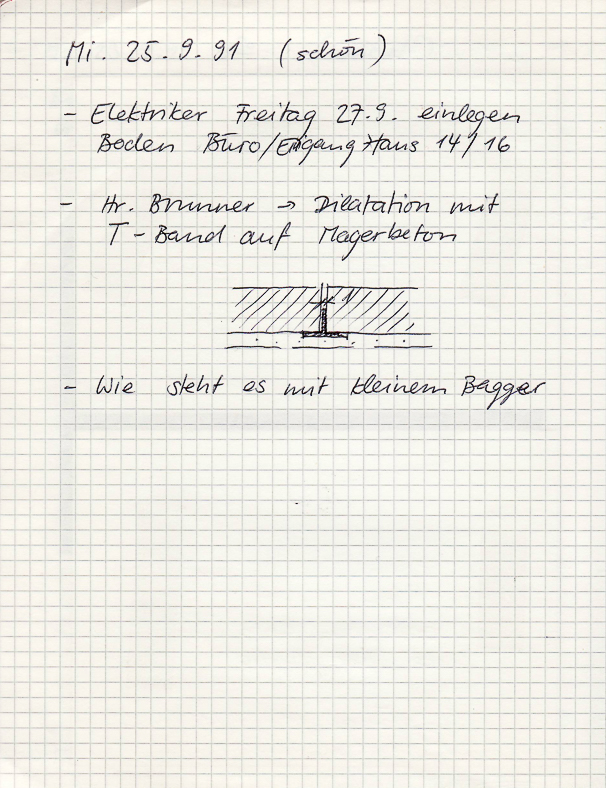 Mi. 25.9.91 (schön)
- Elektriker Freitag 27.9. einlegen
Boden Büro/Eingang Haus 14/16
- Hr. Brunner → Dilatation mit
T-Band auf Magerbeton
1
- Wie steht es mit kleinem Bagger